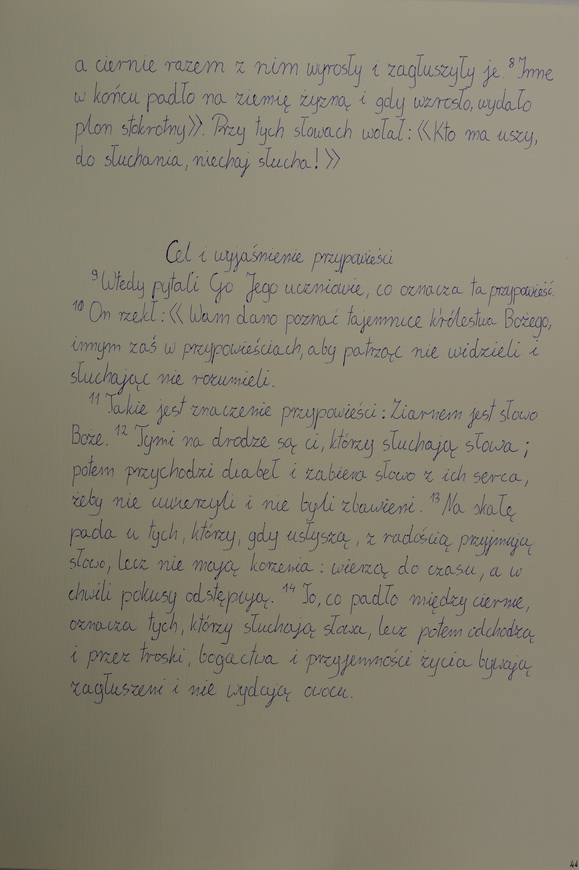 a ciernie razem z nim wyrosły i zagłuszyły je. ⁸ Inne
w końcu padło na ziemię żyzną i gdy wzrosło, wydało
plon stokrotny». Przy tych słowach wołał: «Kto ma uszy,
do słuchania, niechaj słucha!»
Cel i wyjaśnienie przypowieści
⁹ Wtedy pytali Go Jego uczniowie, co oznacza ta przypowieść.
¹⁰ On rzekł: «Wam dano poznać tajemnice królestwa Bożego,
innym zaś w przypowieściach, aby patrząc nie widzieli i
słuchając nie rozumieli.
¹¹ Takie jest znaczenie przypowieści: Ziarnem jest słowo
Boże. ¹² Tymi na drodze są ci, którzy słuchają słowa;
potem przychodzi diabeł i zabiera słowo z ich serca,
żeby nie uwierzyli i nie byli zbawieni. ¹³ Na skałę
pada u tych, którzy, gdy usłyszą, z radością przyjmują
słowo, lecz nie mają korzenia: wierzą do czasu, a w
chwili pokusy odstępują. ¹⁴ To, co padło między ciernie,
oznacza tych, którzy słuchają słowa, lecz potem odchodzą
i przez troski, bogactwa i przyjemności życia bywają
zagłuszeni i nie wydają owocu.
44